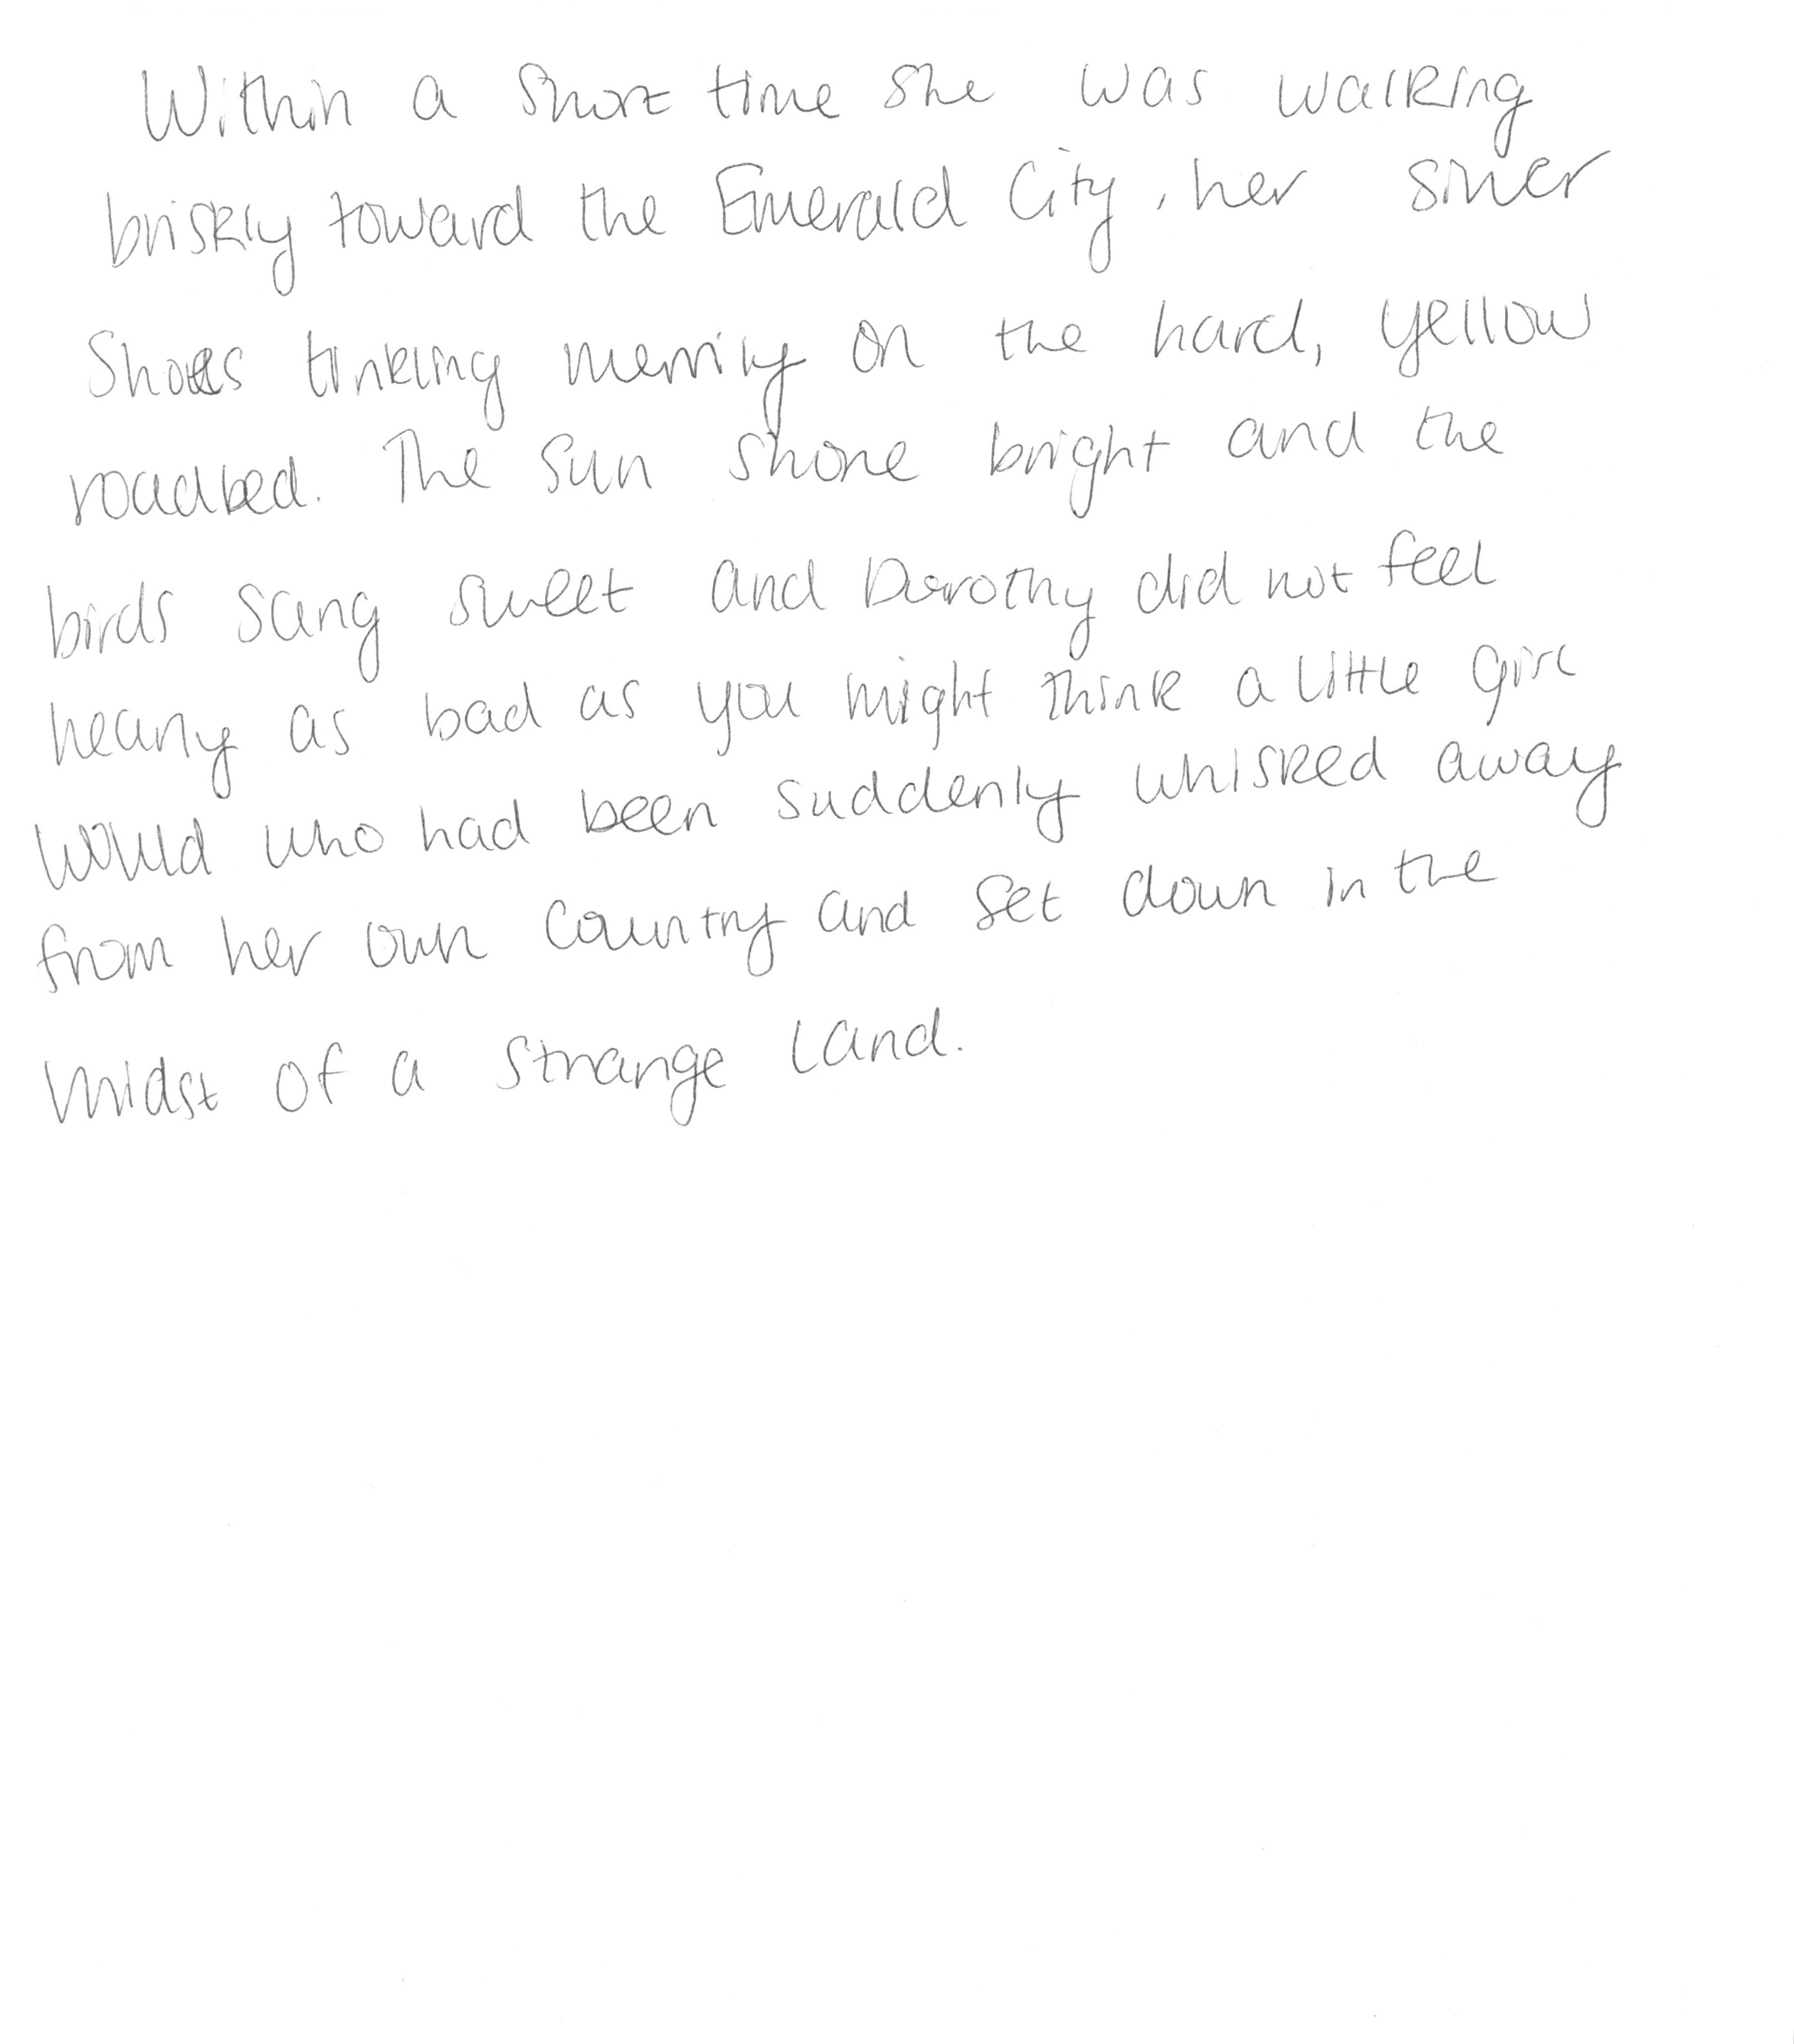 Within a short time she was walking
briskly toward the Emerald City, her silver
Shoes tinkling merrily on the hard, yellow
roadbed. The sun shone bright and the
birds sang sweet and Dorothy did not feel
nearly as bad as you might think a little girl
would who had been suddenly whisked away
from her own country and set down in the
midst of a strange land.